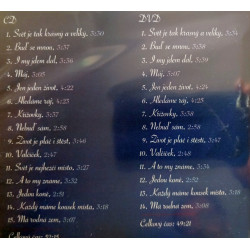 CD:
1. Svět je tak krásný a veliký, 3:30
2. Buď se mnou, 3:37
3. I my jdem dál, 3:36
4. Máj, 3:05
5. Jen jeden život, 4:22
6. Hledáme ráj, 4:25
7. Křižovky, 3:38
8. Nebuď sám, 2:58
9. Život je pláč i štěstí, 3:27
10. Valčíček, 2:47
11. Svět je nejhezčí místo, 3:27
12. A to my známe, 3:32
13. Jedou koně, 2:51
14. Každý máme kousek místa, 3:18
15. Má rodná zem, 3:07
Celkový čas:
DVD:
1. Svět je tak krásný a veliký, 3:30
2. Buď se mnou, 3:38
3. I my jdem dál, 3:36
4. Máj, 3:07
5. Jen jeden život, 4:23
6. Hledáme ráj, 4:25
7. Křižovky, 3:38
8. Nebuď sám, 2:58
9. Život je pláč i štěstí, 3:28
10. Valčíček, 2:48
11. A to my známe, 3:34
12. Jedou koně, 2:52
13. Každý máme kousek místa, 3:18
14. Má rodná zem, 3:08
Celkový čas: 49:21